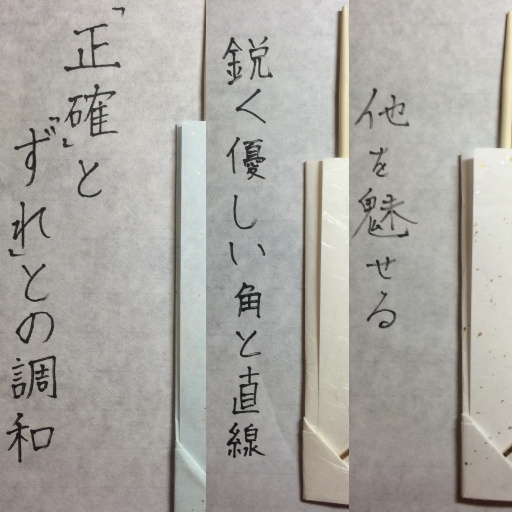 「正確」と
「ずれ」との調和
鋭く優しい角と直線
他を魅せる